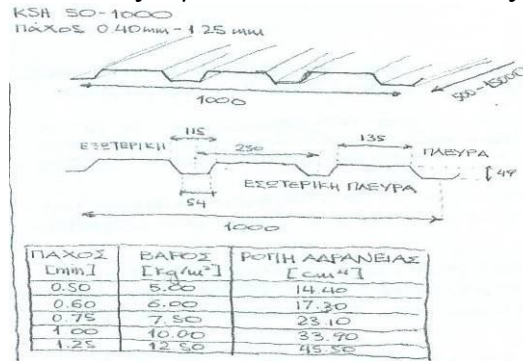 KSH 50-1000
ΠΑΧΟΣ 0.40mm - 1.25 mm
1000
500-15000
115
135
ΕΞΩΤΕΡΙΚΗ
250
ΠΛΕΥΡΑ
ΕΣΩΤΕΡΙΚΗ ΠΛΕΥΡΑ
54
1000
ΠΑΧΟΣ ΒΑΡΟΣ ΡΟΠΗ ΑΔΡΑΝΕΙΑΣ
[mm] [kg/m²] [cm⁴]
0.50 5.00 14.40
0.60 6.00 17.30
0.75 7.50 23.10
1.00 10.00 33.90
1.25 12.50 45.50